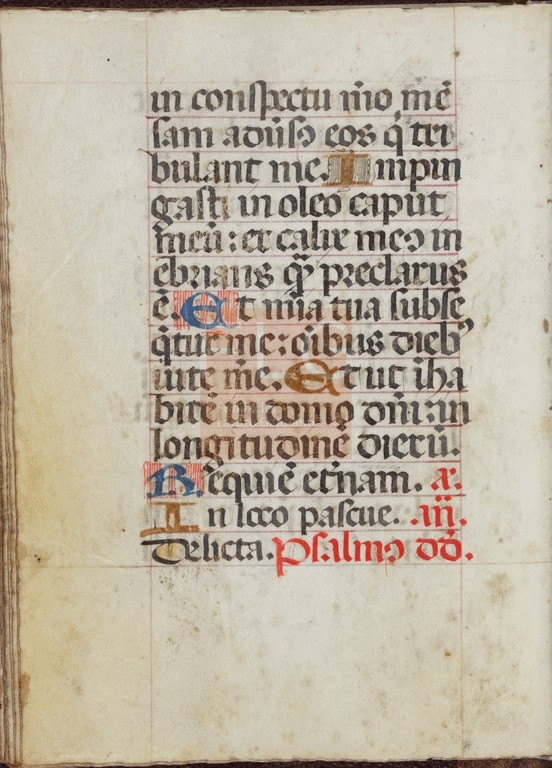 in conspectu mō mē
sam adūsꝰ eos q̄ tri
bulant me. Impin
gasti in oleo caput
meū: et calix meꝰ in
ebrians qꝫ preclarus
ē. Et mīa tua subse
q̄tur me: oībus diebꝰ
uite mē. Et ut īha
bitē in domo dn̄i: in
longitudinē dierū.
Requiē et̄nam. a.
In loco pascue. añ.
Delicta. Psalmꝰ dd̄.